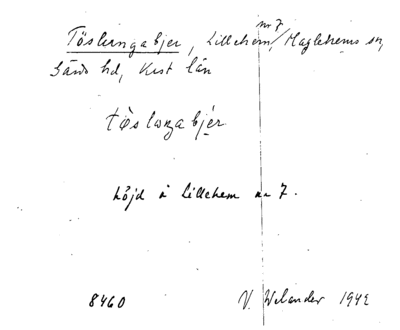 nr 7
Töslungabjer, Lillehem, Maglehems sn,
Gärds hd, Krist län
tösloŋabjér
höjd å Lillehem nr 7.
8460 V. Welander 1942